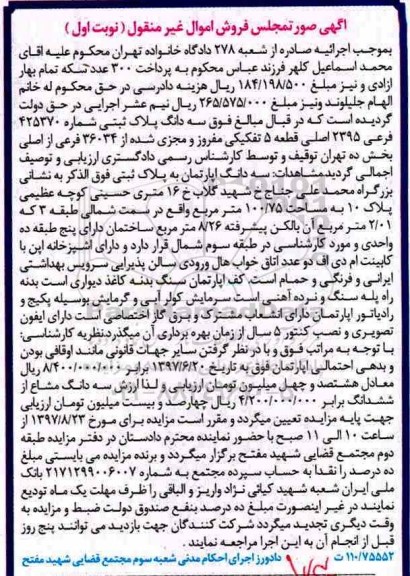 آگهی صورتمجلس فروش اموال غیر منقول ( نوبت اول )
بموجب اجرائیه صادره از شعبه ۲۷۸ دادگاه خانواده تهران محکوم علیه آقای
محمد اسماعیل کلهر فرزند عباس محکوم به پرداخت ۳۰۰ عدد سکه تمام بهار
آزادی و نیز مبلغ ۱۸۴/۱۹۸/۵۰۰ ریال هزینه دادرسی در حق محکوم له خانم
الهام جلیلوند ونیز مبلغ ۲۶۵/۵۷۵/۰۰۰ ریال نیم عشر اجرایی در حق دولت
گردیده است که در قبال مبالغ فوق سه دانگ پلاک ثبتی شماره ۴۲۵۳۷۰
فرعی ۲۳۹۵ اصلی قطعه ۵ تفکیکی مفروز و مجزی شده از ۳۶۰۳۴ فرعی از اصلی
بخش ده تهران توقیف و توسط کارشناس رسمی دادگستری ارزیابی و توصیف
اجمالی گردید.مشاهدات: سه دانگ آپارتمان به پلاک ثبتی فوق الذکر به نشانی
بزرگراه محمد علی جناح خ شهید گلاب خ ۱۶ متری حسینی کوچه عظیمی
پلاک ۱۰ به مساحت ۱۰۰/۷۵ متر مربع واقع در سمت شمالی طبقه ۳ که
۲/۰۱ متر مربع آن بالکن پیشرفته ۸/۲۶ متر مربع ساختمان دارای پنج طبقه ده
واحدی و مورد کارشناسی در طبقه سوم شمال قرار دارد و دارای آشپزخانه اپن با
کابینت ام دی اف دو عدد اتاق خواب هال ورودی سالن پذیرایی سرویس بهداشتی
ایرانی و فرنگی و حمام است. کف آپارتمان سنگ بدنه کاغذ دیواری است بدنه
راه پله سنگ و نرده آهنی است سرمایش کولر آبی و گرمایش بوسیله پکیج و
رادیاتور آپارتمان دارای انشعاب آب مشترک و برق گاز اختصاصی است. دارای آیفون
تصویری و نصب کنتور ۵ سال از زمان بهره برداری آن میگذرد.نظریه کارشناسی:
با توجه به مراتب فوق و با در نظر گرفتن سایر جهات قانونی مانند اوقافی بودن
و بدهی احتمالی آپارتمان فوق به تاریخ ۱۳۹۷/۶/۲۰ برابر ۸/۴۰۰/۰۰۰/۰۰۰ ریال
معادل هشتصد و چهل میلیون تومان ارزیابی و لذا ارزش سه دانگ مشاع از
ششدانگ برابر ۴/۲۰۰/۰۰۰/۰۰۰ ریال چهارصد و بیست میلیون تومان ارزیابی
جهت پایه مزایده تعیین میگردد و مقرر است مزایده برای مورخ ۱۳۹۷/۸/۲۳ از
ساعت ۱۰ الی ۱۱ صبح با حضور نماینده محترم دادستان در دفتر مزایده طبقه
دوم مجتمع قضایی شهید مفتح برگزار میگردد و برنده مزایده می بایستی مبلغ
ده درصد را نقدا به حساب سپرده مجتمع به شماره ۲۱۷۱۲۹۹۰۰۶۰۰۷ بانک
ملی ایران شعبه شهید کیائی نژاد واریز و الباقی را ظرف مهلت یک ماه تودیع
نمایند در غیر اینصورت مبلغ ده درصد بنفع صندوق دولت ضبط و مزایده به
وقت دیگری تجدید میگردد شرکت کنندگان جهت بازدید می توانند پنج روز
قبل از انجام آن به این اجرا مراجعه نمایند .
۱۱۰/۷۵۵۵۲ ت دادورز اجرای احکام مدنی شعبه سوم مجتمع قضایی شهید مفتح